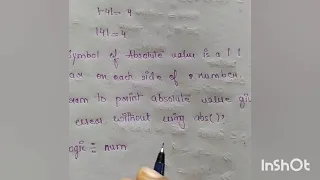 |-4| = 4
|4| = 4
Symbol of Absolute value is a | |
bar on each side of a number.
to print absolute value
without using abs()?
num
InShOt